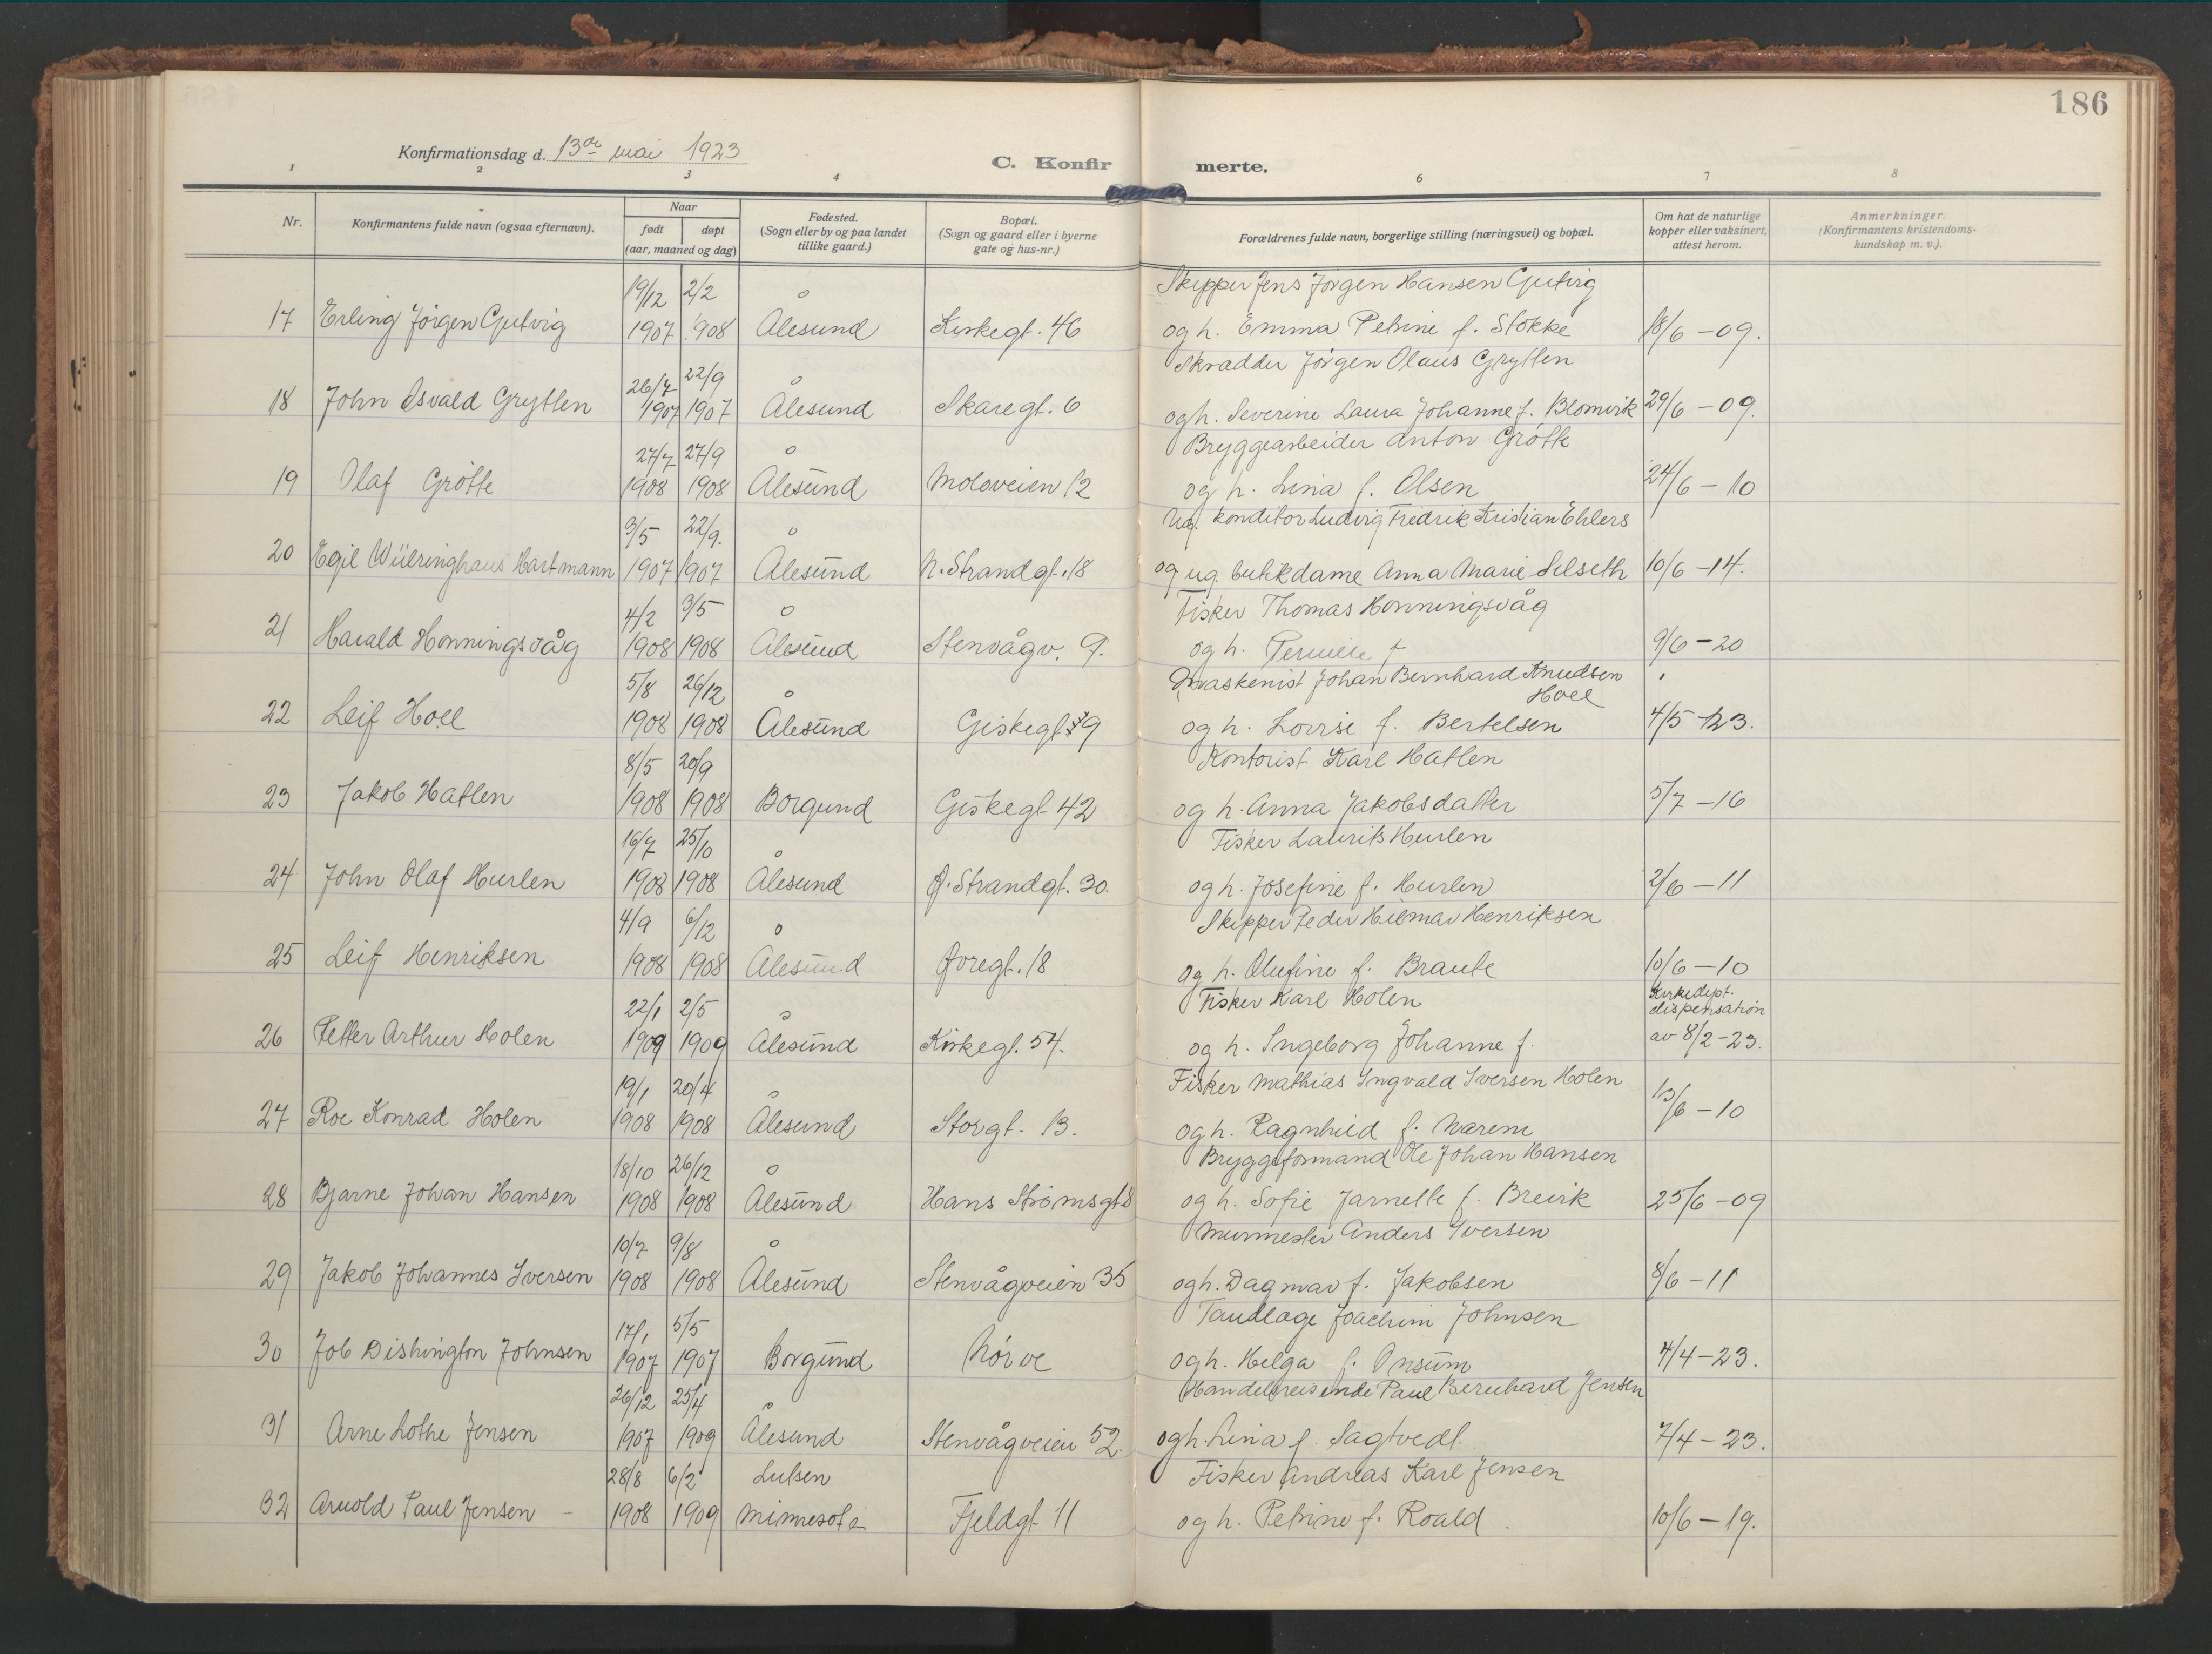 186
Konfirmationsdag d. 13de mai 1923
C. Konfir merte.
1 2 3 4 6 7 8
Nr.
Konfirmantens fulde navn (ogsaa efternavn).
Naar
født døpt
(aar, maaned og dag)
Fødested.
(Sogn eller by og paa landet
tillike gaard.)
Bopæl.
(Sogn og gaard eller i byerne
gate og hus-nr.)
Forældrenes fulde navn, borgerlige stilling (næringsvei) og bopæl.
Om hat de naturlige
kopper eller vaksinert,
attest herom.
Anmerkninger.
(Konfirmantens kristendoms-
kundskap m. v.).
19/12 2/2 Skipper Jens Jörgen Hansen Gutvig
17 Erling Jörgen Gutvig 1907 1908 Ålesund Kirkegt. 46 og h. Emma Petrine f. Stokke 18/6 - 09.
26/7 22/9 Skrædder Jörgen Olaus Grytten
18 John Osvald Grytten 1907 1907 Ålesund Skaregt. 6 og h. Severine Laura Johanne f. Blomvik 29/6 - 09.
27/7 27/9 Bryggearbeider Anton Grötte
19 Olaf Grötte 1908 1908 Ålesund Moloveien 12 og h. Lina f. Olsen 24/6 - 10
3/5 22/9. Ug. konditor Ludvig Fredrik Kristian Ehlers
20 Egil Wülringhaus Hartmann 1907 1907 Ålesund N. Strandgt. 18 og ug. butikdame Anna Marie Selseth 10/6 - 14.
4/2 3/5 Fisker Thomas Honningsvåg
21 Harald Honningsvåg 1908 1908 Ålesund Stenvågv. 9. og h. Pernille f 9/6 - 20
5/8 26/12 Maskenist Johan Bernhard Knudsen
Hoel
22 Leif Hoel 1908 1908 Ålesund Giskegt 9 og h. Lovise f. Bertelsen 4/5 - 23.
8/5 20/9 Kontorist Karl Hatlen
23 Jakob Hatlen 1908 1908 Borgund Giskegt 42 og h. Anna Jakobsdatter 5/7 - 16
16/7 25/10 Fisker Laurits Hurlen
24 John Olaf Hurlen 1908 1908 Ålesund Ø. Strandgt. 30. og h. Josefine f. Hurlen 2/6 - 11
4/9 6/12 Skipper Peder Hilmar Henriksen
25 Leif Henriksen 1908 1908 Ålesund Øvregt. 18 og h. Olufine f. Braute 10/6 - 10
22/1 2/5 Fisker Karl Holen Kirkedept.
dispensation
26 Petter Arthur Holen 1909 1909 Ålesund Kirkegt. 54. og h. Ingeborg Johanne f. av 8/2 - 23.
19/1 20/4 Fisker Mathias Ingvald Iversen Holen
27 Roe Konrad Holen 1908 1908 Ålesund Storgt. 13. og h. Ragnhild f. Marene 13/6 - 10
18/10 26/12 Bryggeformand Ole Johan Hansen
28 Bjarne Johan Hansen 1908 1908 Ålesund Hans Strömsgt 8 og h. Sofie Jarnelle f. Breivik 25/6 - 09
10/7 9/8 Murmester Anders Iversen
29 Jakob Johannes Iversen 1908 1908 Ålesund Stenvågveien 35 og h. Dagmar f. Jakobsen 8/6 - 11
17/1 5/5 Tandlæge Joachim Johnsen
30 Job Dishington Johnsen 1907 1907 Borgund Nörve og h. Helga f. Onsum 4/4 - 23.
26/12 25/4 Handelsreisende Paul Bernhard Jensen
31 Arne Lothe Jensen 1907 1909 Ålesund Stenvågveien 52. og h. Lina f. Sagtvedt. 7/4 - 23.
28/8 6/2 Lutsen Fisker Andreas Karl Jensen
32 Arnold Paul Jensen - 1908 1909 Minnesota Fjeldgt 11 og h. Petrine f. Roald. 10/6 - 19.